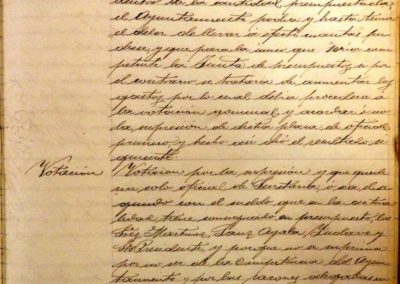 dentro de la cantidad presupuestada
el Ayuntamiento podia y hasta tenia
el deber de llevar a efecto cuantas pu
diese, y que para lo unico que seria com
petente la Junta de presupuestos, si por
el contrario se tratara de aumentar los
gastos, por lo cual debia procederse á
la votacion nominal y acordar ó no
la supresion de dicha plaza de oficial
primero, y hecho asi dió el resultado si
guiente:
Votación
Votaron por la supresión y que quede
un solo oficial de Secretaria, ó sea el se
gundo con el sueldo que en la actua
lidad tiene consignado en presupuesto, los
Sres Martinez, Sanz, Ayala, y
Sr Presidente, y porque no se suprima
por no ser de la competencia del Ayun
tamiento y por las razones alegadas en